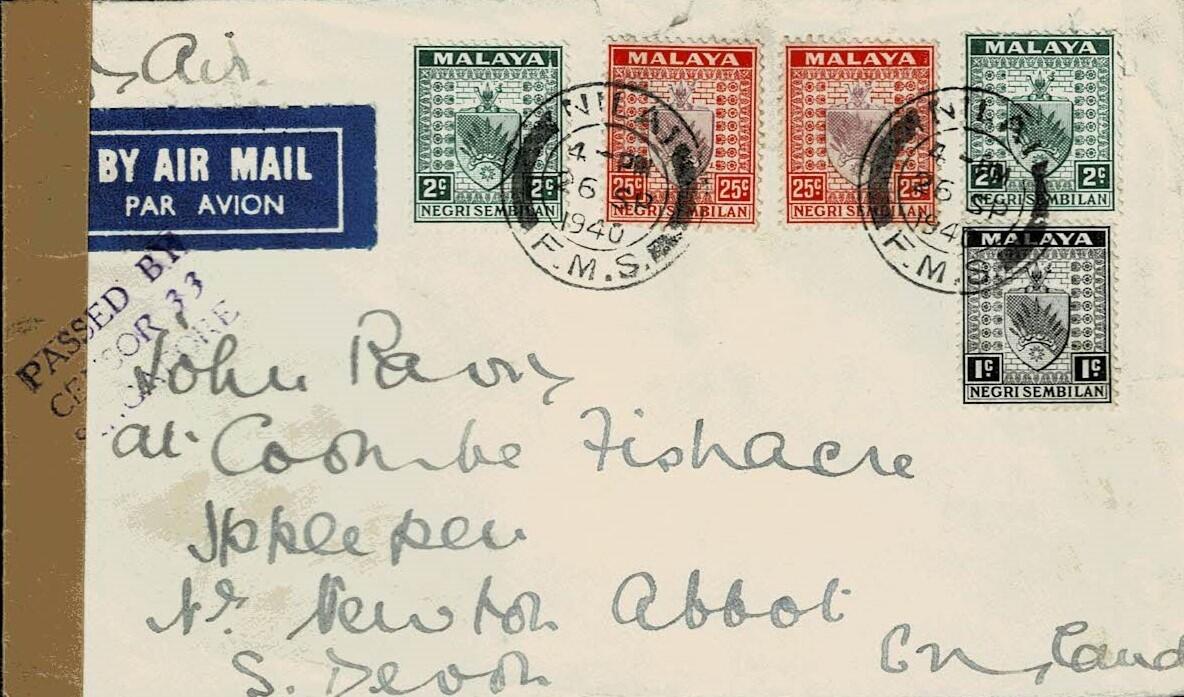 Air
BY AIR MAIL
PAR AVION
MALAYA
2c 2c
NEGRI SEMBILAN
MALAYA
25c 25c
NEGRI SEMBILAN
MALAYA
25c 25c
NEGRI SEMBILAN
MALAYA
2c 2c
NEGRI SEMBILAN
MALAYA
1c 1c
NEGRI SEMBILAN
NILAI
4 - PM
26 SP
1940
F.M.S.
NILAI
4 - PM
26 SP
1940
F.M.S.
PASSED BY
CENSOR 33
SINGAPORE
John
at Coombe Fishacre
Ipplepen
Nr Newton Abbot
S. Devon England